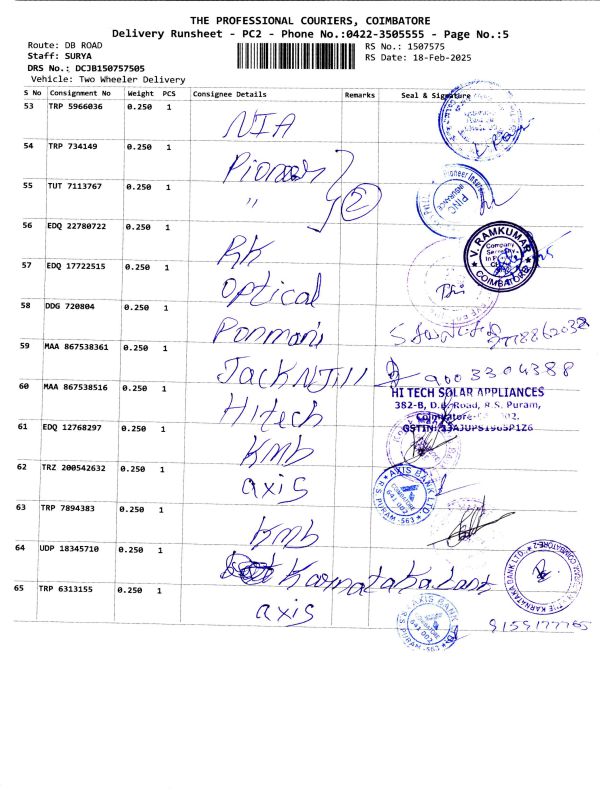 THE PROFESSIONAL COURIERS, COIMBATORE
Delivery Runsheet - PC2 - Phone No.:0422-3505555 - Page No.:5
Route: DB ROAD RS No.: 1507575
Staff: SURYA RS Date: 18-Feb-2025
DRS No.: DCJB150757505
Vehicle: Two Wheeler Delivery
S No Consignment No Weight PCS Consignee Details Remarks Seal & Signature
53 TRP 5966036 0.250 1 NIA
54 TRP 734149 0.250 1 Pioneer
55 TUT 7113767 0.250 1 " 2
Pioneer Insurance
PINC INSURANCE
56 EDQ 22780722 0.250 1 RK
V. RAMKUMAR
Company Secretary
COIMBATORE
57 EDQ 17722515 0.250 1 Optical
58 DDG 720804 0.250 1 Ponmani
59 MAA 867538361 0.250 1 Jack N Jill 9003304388
60 MAA 867538516 0.250 1 Hitech
HI TECH SOLAR APPLIANCES
382-B, D.B. Road, R.S. Puram,
61 EDQ 12768297 0.250 1 KMB
62 TRZ 200542632 0.250 1 axis
AXIS BANK LTD.
COIMBATORE
641 002
R.S. PURAM - 563
63 TRP 7894383 0.250 1 KMB
64 UDP 18345710 0.250 1 Karnataka Bank
THE KARNATAKA BANK LTD.
COIMBATORE-2
65 TRP 6313155 0.250 1 axis
AXIS BANK
641 002
R.S. PURAM - 563
9159177765